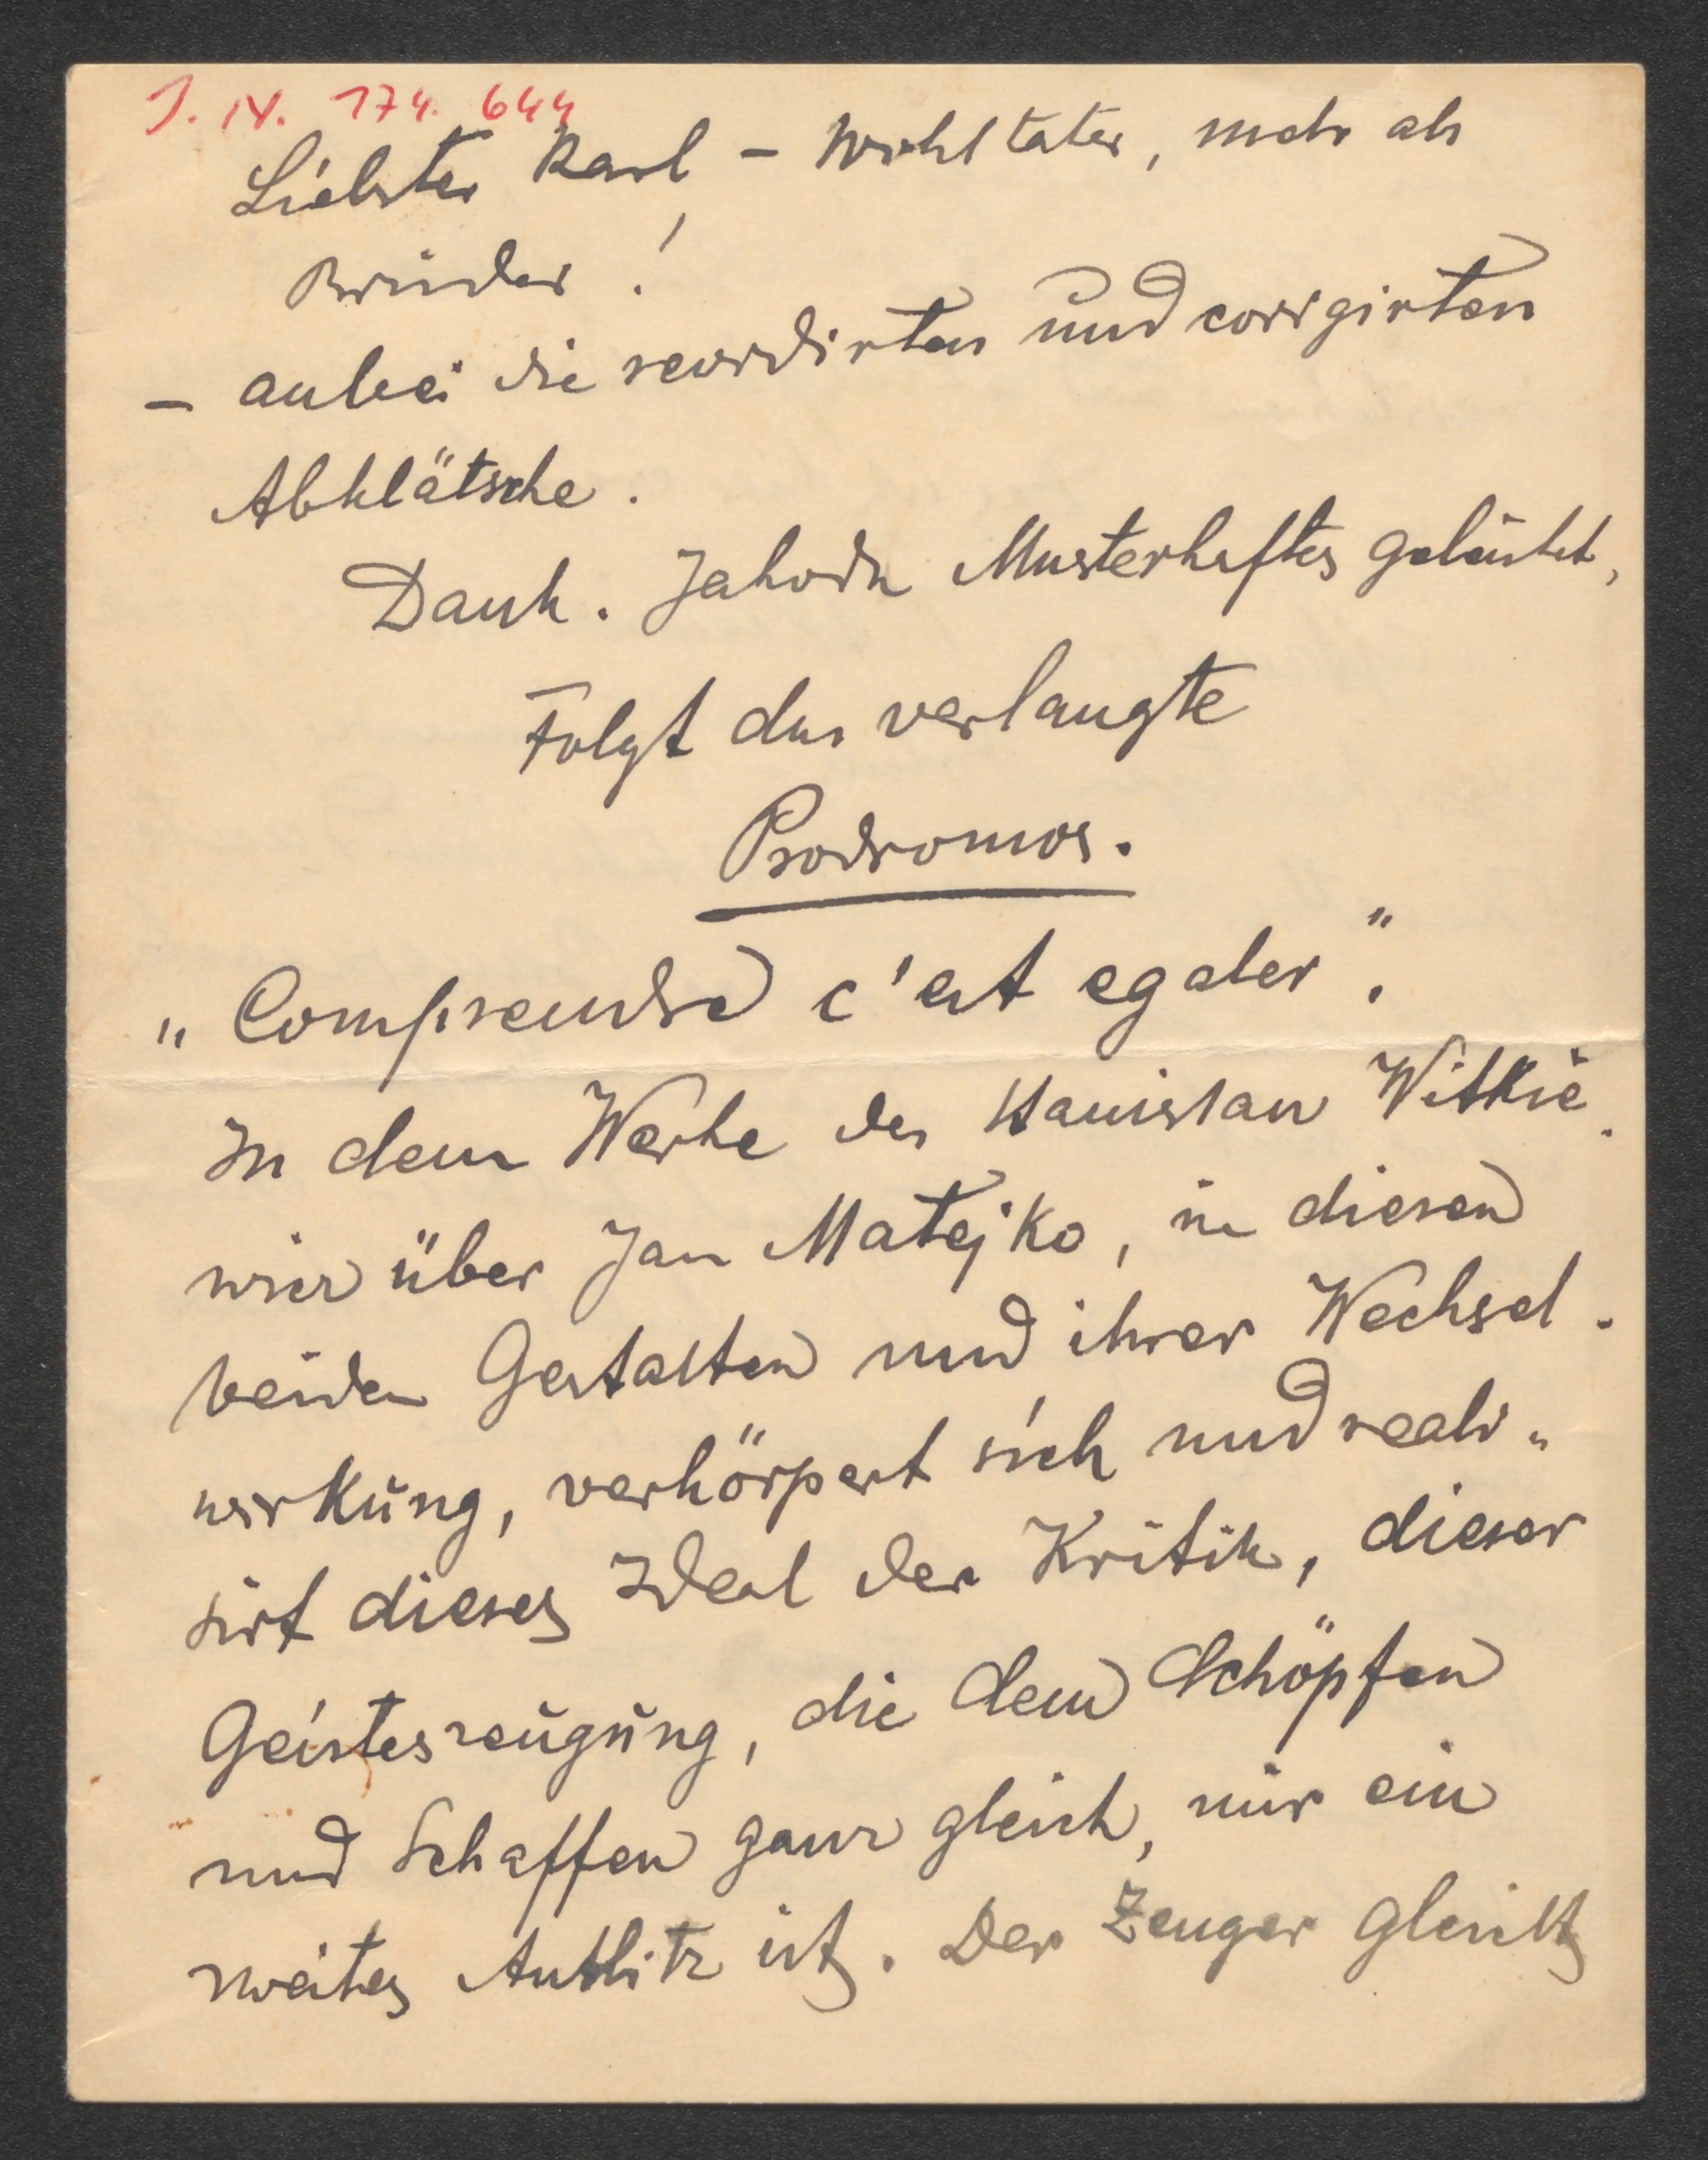 J. N. 174.644
Liebster Karl – Wohltäter, mehr als
Bruder!
– anbei die revidirten und corrigirten
Abklätsche.
Dank. Jahoda Musterhaftes geleistet,
Folgt das verlangte
Prodromos.
„Comprendre c'est egaler".
In dem Werke des Stanislau Witkie-
wicz über Jan Matejko, in diesen
beiden Gestalten und ihrer Wechsel-
wirkung, verkörpert sich und reali-
sirt dieses Ideal der Kritik, dieser
Geisteszeugung, die dem Schöpfen
und Schaffen ganz gleich, nur ein
zweites Antlitz ist. Der Zeuger gleicht